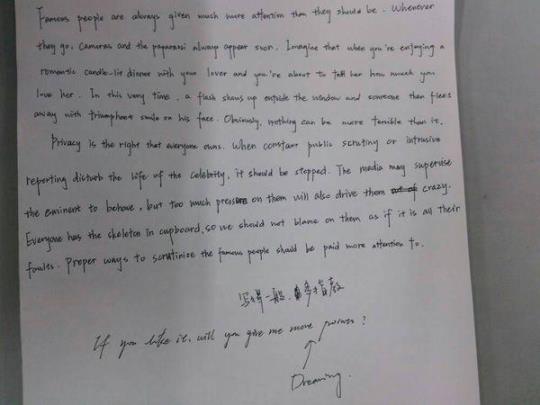 Famous people are always given much more attention than they should be. Whenever
they go, cameras and the paparazzi always appear soon. Imagine that when you're enjoying a
romantic candle-lit dinner with your lover and you're about to tell her how much you
love her. In this very time, a flash shows up outside the window and someone then flees
away with triumphant smile on his face. Obviously, nothing can be more terrible than it.
Privacy is the right that everyone owns. When constant public scrutiny or intrusive
reporting disturb the life of the celebrity, it should be stopped. The media may supervise
the eminent to behave, but too much pressure on them will also drive them crazy.
Everyone has the skeleton in cupboard, so we should not blame on them as if it is all their
foules. Proper ways to scrutinize the famous people should be paid more attention to.
写得一般，多多指教
If you like it, will you give me more points?
Dreaming.